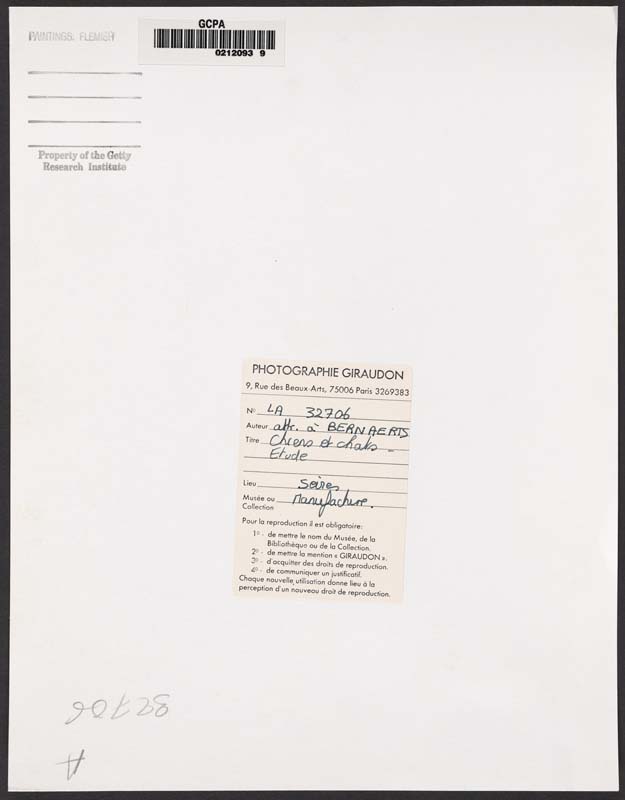 PAINTINGS, FLEMISH
GCPA
0212093 9
Property of the Getty
Research Institute
PHOTOGRAPHIE GIRAUDON
9, Rue des Beaux-Arts, 75006 Paris 3269383
N° LA 32706
Auteur attr. à BERNAERTS
Titre Chiens et chats -
Etude
Lieu Sèvres
Musée ou Manufacture.
Collection
Pour la reproduction il est obligatoire:
1° - de mettre le nom du Musée, de la
Bibliothèque ou de la Collection.
2° - de mettre la mention « GIRAUDON ».
3° - d'acquitter des droits de reproduction.
4° - de communiquer un justificatif.
Chaque nouvelle utilisation donne lieu à la
perception d'un nouveau droit de reproduction.